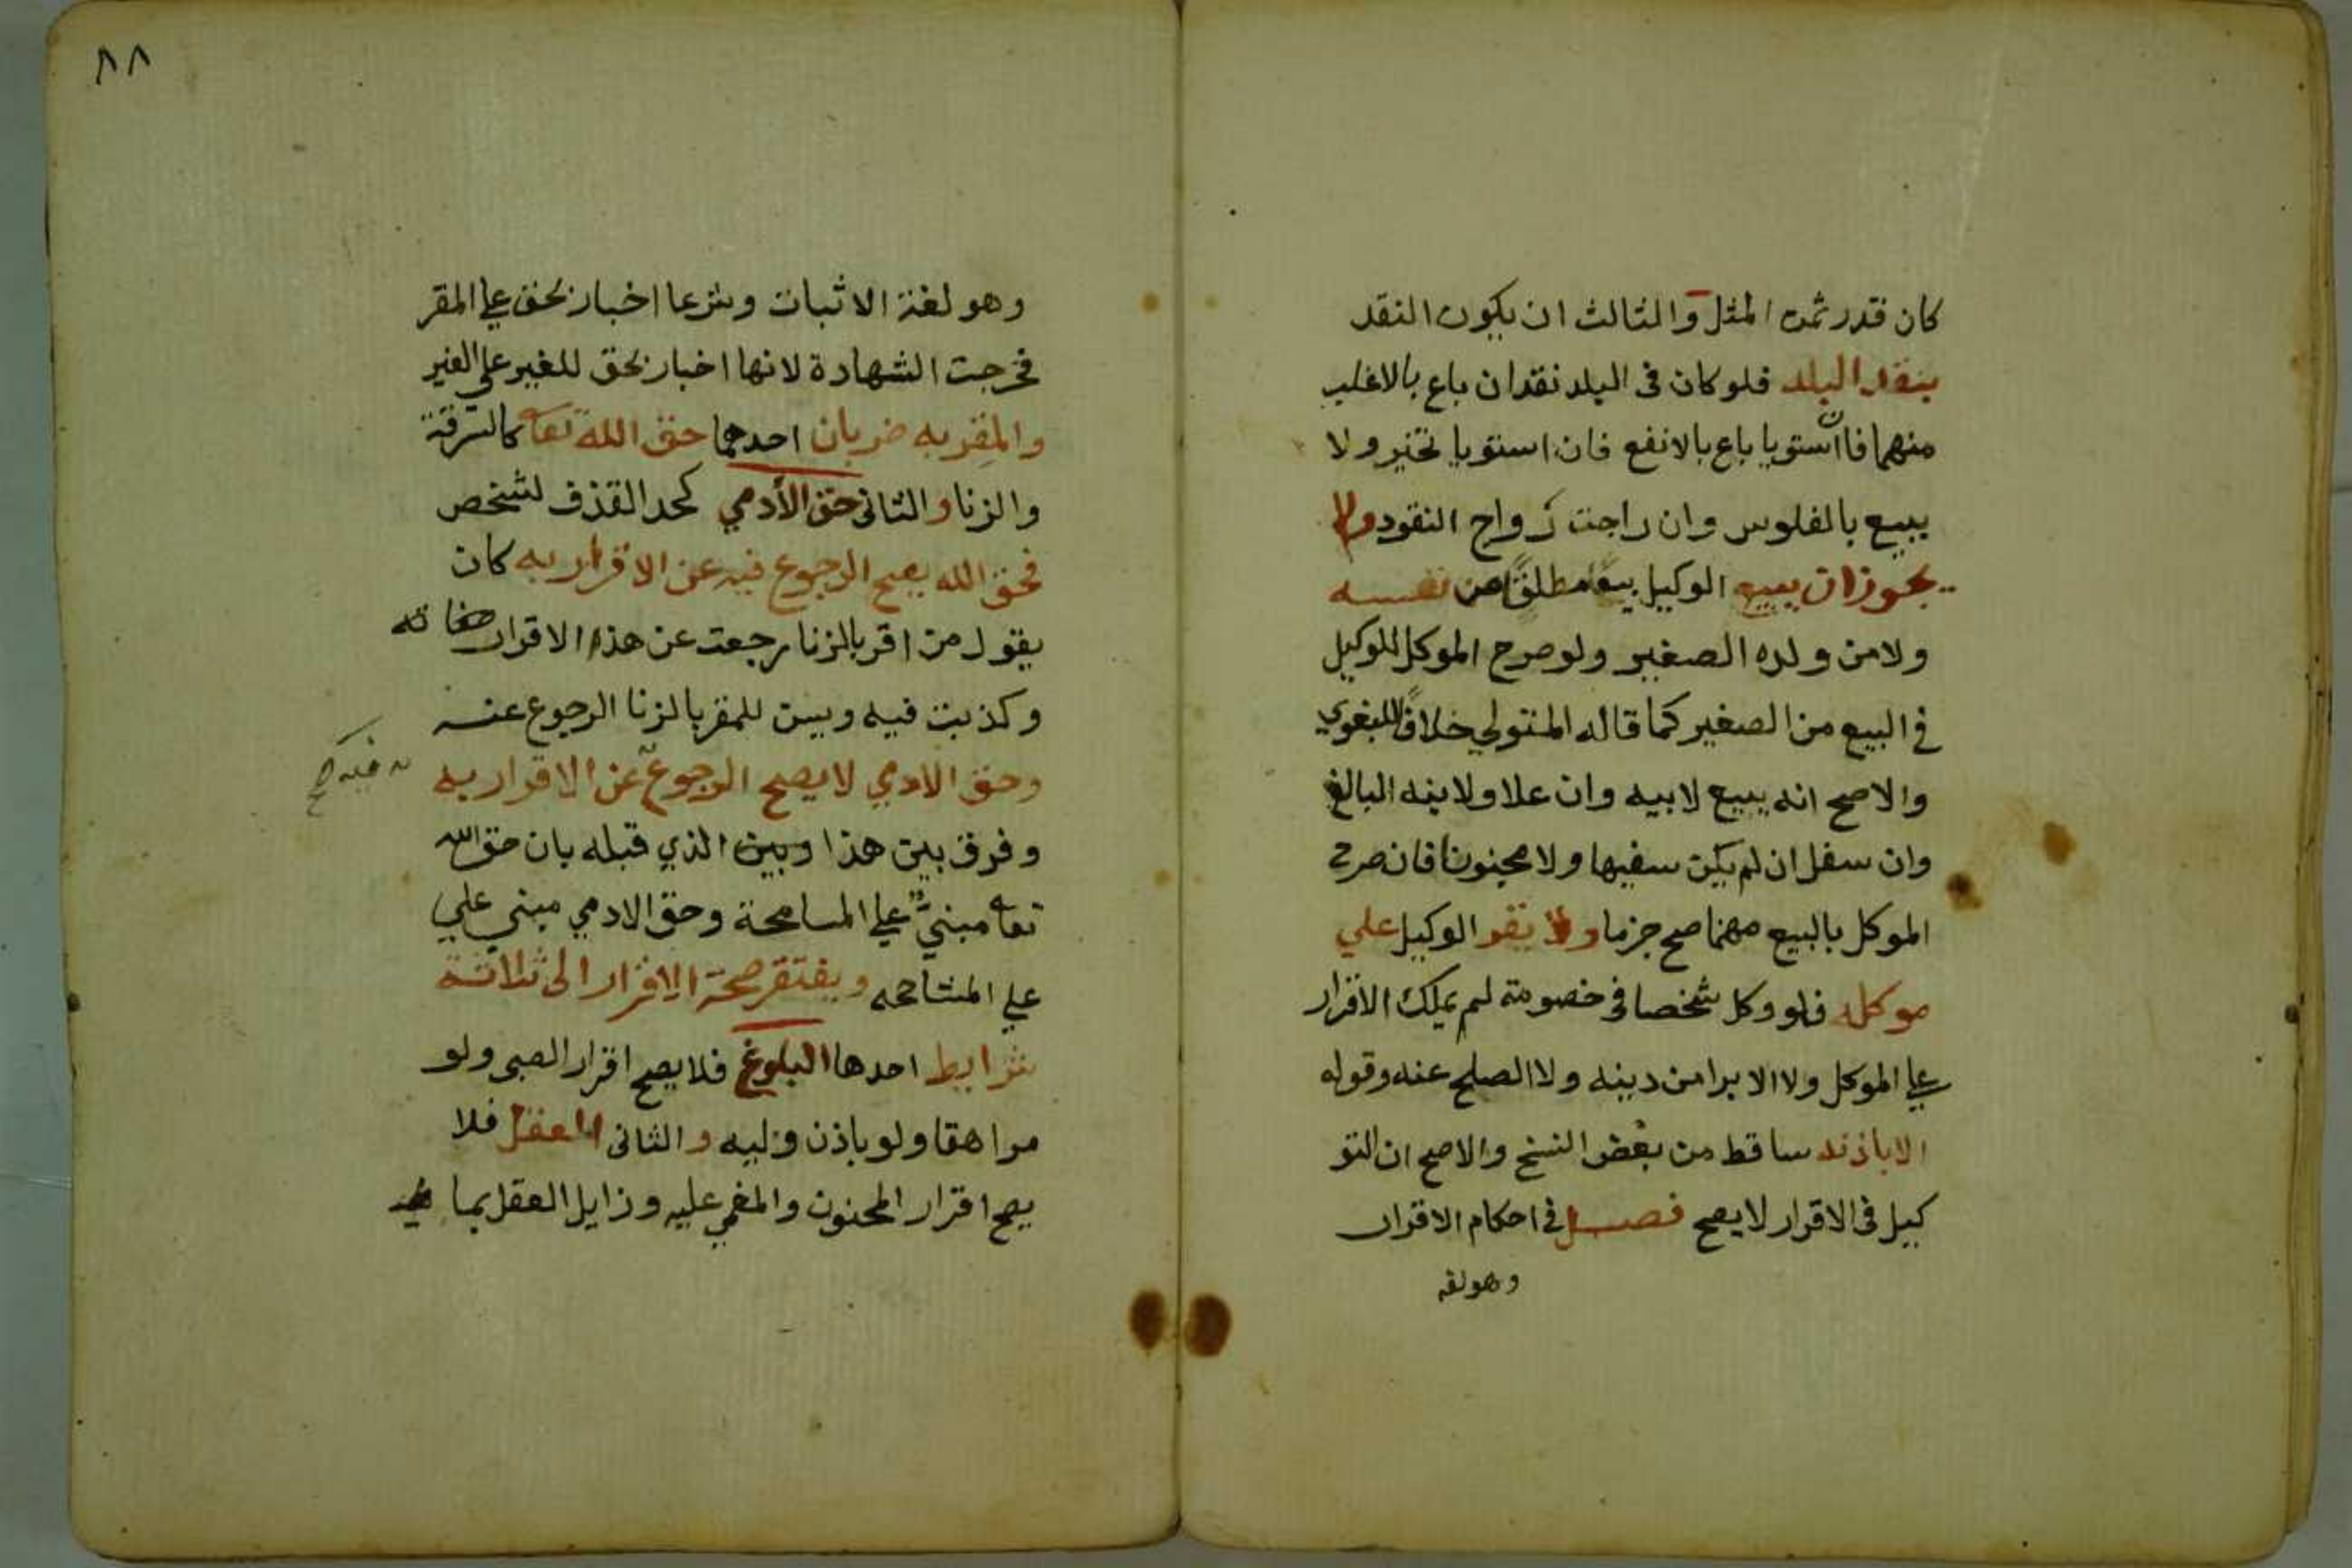 كان قدر ثمن المثل والثالث ان يكون النقد
بنقد البلد فلو كان فى البلد نقدان باع بالاغلب
منهما فان استويا باع بالانفع فان استويا تخير ولا
يبيع بالفلوس وان راجت رواج النقود ولا
يجوز ان يبيع الوكيل بيعا مطلقا من نفسه
ولا من ولده الصغير ولو صرح الموكل للوكيل
في البيع من الصغير كما قاله المتولي خلافا للبغوي
والاصح انه يبيع لابيه وان علا ولابنه البالغ
وان سفل ان لم يكن سفيها ولا مجنونا فان صرح
الموكل بالبيع منهما صح جزما ولا يقر الوكيل علي
موكله فلو وكل شخصا في خصومة لم يملك الاقرار
علي الموكل ولا الابرا من دينه ولا الصلح عنه وقوله
الا باذنه ساقط من بعض النسخ والاصح ان التو
كيل فى الاقرار لا يصح فصل في احكام الاقرار
وهو لغة
٨٨
وهو لغة الاثبات وشرعا اخبار بحق علي المقر
فخرجت الشهادة لانها اخبار بحق للغير على الغير
والمقر به ضربان احدهما حق الله تعا كالسرقة
والزنا والثانى حق الأدمي كحد القذف لشخص
فحق الله يصح الرجوع فيه عن الاقرار به كان
يقول من اقر بالزنا رجعت عن هذا الاقرار
وكذبت فيه ويسن للمقر بالزنا الرجوع عنه
وحق الادمي لا يصح الرجوع عن الاقرار به
فيه صح
وفرق بين هذا وبين الذي قبله بان حق الله
تعا مبني علي المسامحة وحق الادمي مبني علي
علي المشاححه ويفتقر صحة الاقرار الى ثلاثة
شرايط احدها البلوغ فلا يصح اقرار الصبى ولو
مراهقا ولو باذن وليه والثانى العقل فلا
يصح اقرار المجنون والمغمي عليه وزايل العقل بما